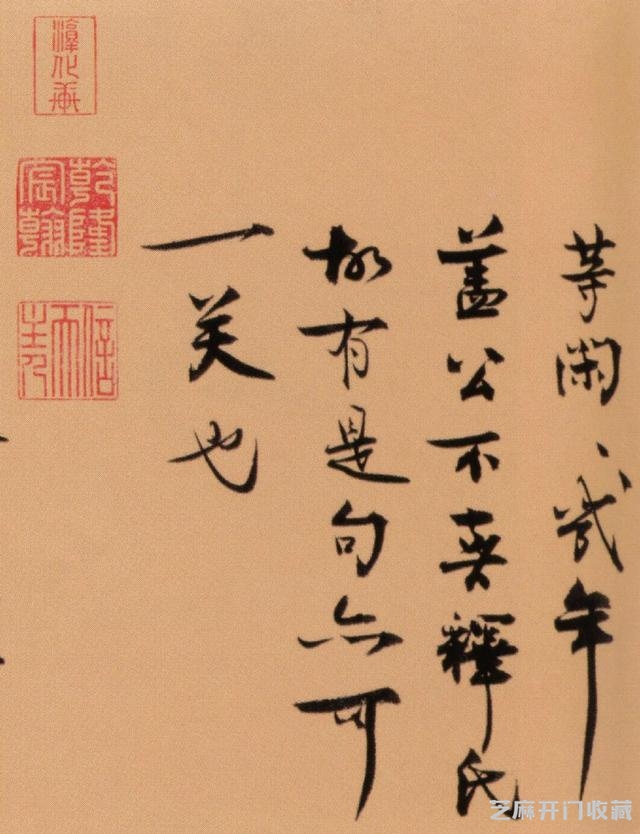 等閑〻年
蓋公不喜釋氏
故有是句亦可
一笑也
淳化軒
乾隆宸翰
信天主人
芝麻开门收藏